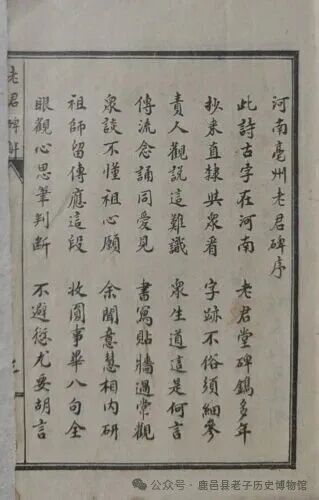 河南亳州老君碑序
此詩古字在河南 老君堂碑鐫多年
抄來直隸與衆看 字跡不俗須細參
責人觀說這難識 衆生道這是何言
傳流念誦同愛見 書寫貼牆過常觀
衆談不懂祖心願 余聞意慧相內研
祖師留傳應這段 收圓事畢八句全
眼觀心思筆判斷 不避愆尤妄胡言
老君碑
公众号·鹿邑县老子历史博物馆